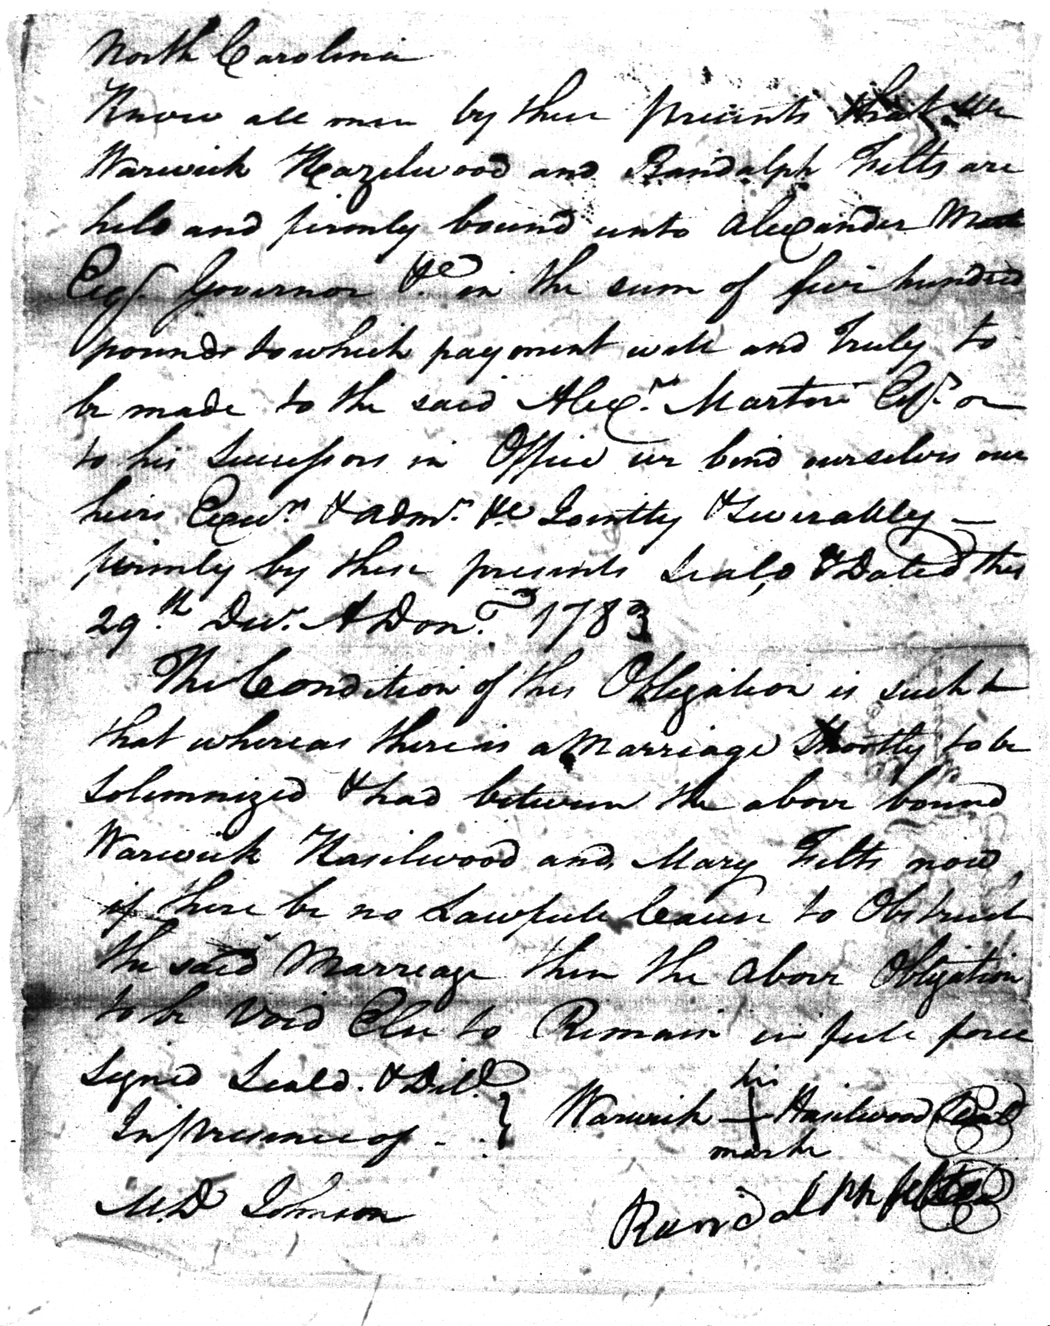 North Carolina
Know all men by these presents that we
Warwick Hazelwood and Randalph Felts are
held and firmly bound unto Alexander
Esqr. Governor &c in the sum of five hundred
pounds to which payment well and Truly to
be made to the said Alexr. Martin Esqr. or
to his Successors in Office we bind ourselves our
heirs Execurs. & admrs. &c Jointly & Severally —
firmly by these presents Seald, & Dated this
29th. Decr. A Don. 1783
The Condition of this Obligation is such
that whereas there is a Marriage Shortly to be
Solemnized & had between the above bound
Warwick Hasilwood and Mary Felts now
if there be no Lawfull Cause to Obstruct
the said Marriage then the above Obligation
to be Void Else to Remain in full force
Signed Seald. & Deld.
In presence of -
his
Warwick + Hasilwood Seal
mark
M.D Johnson
Randalph felts